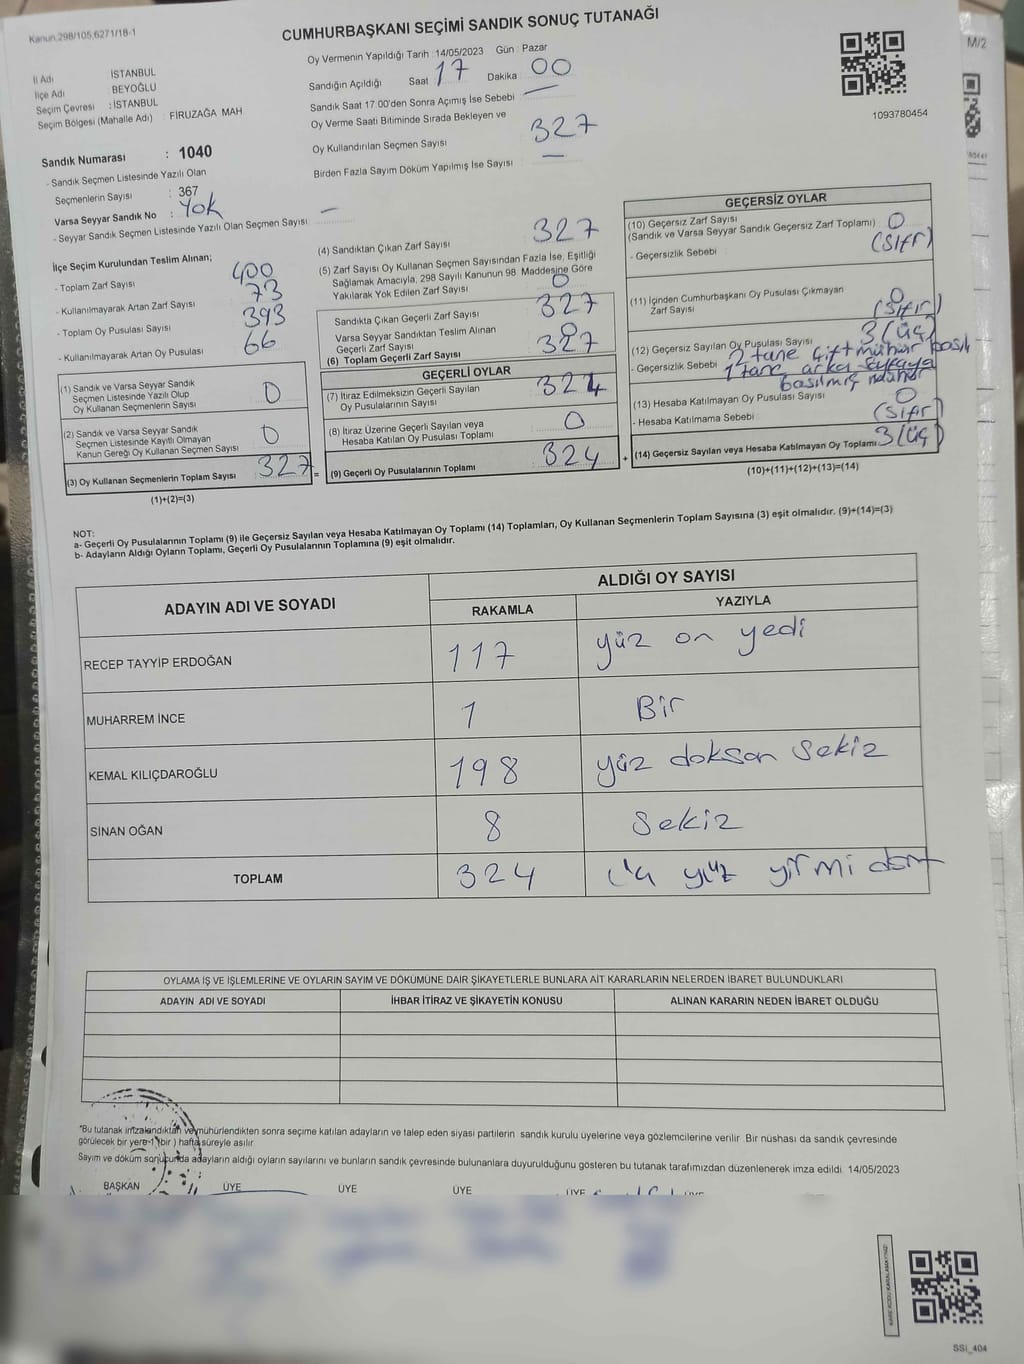 Kanun,298/105,6271/18-1
CUMHURBAŞKANI SEÇİMİ SANDIK SONUÇ TUTANAĞI
M/2
İl Adı İSTANBUL
İlçe Adı : BEYOĞLU
Seçim Çevresi : İSTANBUL
Seçim Bölgesi (Mahalle Adı) : FİRUZAĞA MAH
Oy Vermenin Yapıldığı Tarih :14/05/2023 Gün : Pazar
Sandığın Açıldığı Saat 17 Dakika : 00
Sandık Saat 17.00'den Sonra Açımış İse Sebebi : —
Oy Verme Saati Bitiminde Sırada Bekleyen ve
Oy Kullandırılan Seçmen Sayısı : 327
Birden Fazla Sayım Döküm Yapılmış İse Sayısı : —
1093780454
Sandık Numarası : 1040
- Sandık Seçmen Listesinde Yazılı Olan
Seçmenlerin Sayısı : 367
Varsa Seyyar Sandık No : Yok
- Seyyar Sandık Seçmen Listesinde Yazılı Olan Seçmen Sayısı : —
İlçe Seçim Kurulundan Teslim Alınan;
- Toplam Zarf Sayısı : 400
- Kullanılmayarak Artan Zarf Sayısı : 73
- Toplam Oy Pusulası Sayısı : 393
- Kullanılmayarak Artan Oy Pusulası : 66
(1) Sandık ve Varsa Seyyar Sandık
Seçmen Listesinde Yazılı Olup
Oy Kullanan Seçmenlerin Sayısı 0
(2) Sandık ve Varsa Seyyar Sandık
Seçmen Listesinde Kayıtlı Olmayan
Kanun Gereği Oy Kullanan Seçmen Sayısı 0
(3) Oy Kullanan Seçmenlerin Toplam Sayısı 327
(1)+(2)=(3)
(4) Sandıktan Çıkan Zarf Sayısı : 327
(5) Zarf Sayısı Oy Kullanan Seçmen Sayısından Fazla İse, Eşitliği
Sağlamak Amacıyla, 298 Sayılı Kanunun 98. Maddesine Göre
Yakılarak Yok Edilen Zarf Sayısı : 0
Sandıkta Çıkan Geçerli Zarf Sayısı : 327
Varsa Seyyar Sandıktan Teslim Alınan
Geçerli Zarf Sayısı : 0
(6) Toplam Geçerli Zarf Sayısı : 327
GEÇERLİ OYLAR
(7) İtiraz Edilmeksizin Geçerli Sayılan
Oy Pusulalarının Sayısı 324
(8) İtiraz Üzerine Geçerli Sayılan veya
Hesaba Katılan Oy Pusulası Toplamı 0
= (9) Geçerli Oy Pusulalarının Toplamı 324
GEÇERSİZ OYLAR
(10) Geçersiz Zarf Sayısı
(Sandık ve Varsa Seyyar Sandık Geçersiz Zarf Toplamı) : 0
- Geçersizlik Sebebi : (Sıfır)
(11) İçinden Cumhurbaşkanı Oy Pusulası Çıkmayan
Zarf Sayısı : 0 (Sıfır)
(12) Geçersiz Sayılan Oy Pusulası Sayısı : 3 (üç)
- Geçersizlik Sebebi : 2 tane çift mühür basılı
1 tane arka sayfaya
basılmış mühür
(13) Hesaba Katılmayan Oy Pusulası Sayısı : 0
- Hesaba Katılmama Sebebi : (Sıfır)
+ (14) Geçersiz Sayılan veya Hesaba Katılmayan Oy Toplamı 3 (üç)
(10)+(11)+(12)+(13)=(14)
NOT:
a- Geçerli Oy Pusulalarının Toplamı (9) ile Geçersiz Sayılan veya Hesaba Katılmayan Oy Toplamı (14) Toplamları, Oy Kullanan Seçmenlerin Toplam Sayısına (3) eşit olmalıdır. (9)+(14)=(3)
b- Adayların Aldığı Oyların Toplamı, Geçerli Oy Pusulalarının Toplamına (9) eşit olmalıdır.
ADAYIN ADI VE SOYADI ALDIĞI OY SAYISI
RAKAMLA YAZIYLA
RECEP TAYYİP ERDOĞAN 117 yüz on yedi
MUHARREM İNCE 1 Bir
KEMAL KILIÇDAROĞLU 198 yüz doksan sekiz
SİNAN OĞAN 8 Sekiz
TOPLAM 324 üç yüz yirmi dört
OYLAMA İŞ VE İŞLEMLERİNE VE OYLARIN SAYIM VE DÖKÜMÜNE DAİR ŞİKAYETLERLE BUNLARA AİT KARARLARIN NELERDEN İBARET BULUNDUKLARI
ADAYIN ADI VE SOYADI İHBAR İTİRAZ VE ŞİKAYETİN KONUSU ALINAN KARARIN NEDEN İBARET OLDUĞU
*Bu tutanak imzalandıktan ve mühürlendikten sonra seçime katılan adayların ve talep eden siyasi partilerin sandık kurulu üyelerine veya gözlemcilerine verilir. Bir nüshası da sandık çevresinde
görülecek bir yere 1 (bir) hafta süreyle asılır
Sayım ve döküm sonucunda adayların aldığı oyların sayılarını ve bunların sandık çevresinde bulunanlara duyurulduğunu gösteren bu tutanak tarafımızdan düzenlenerek imza edildi. 14/05/2023
BAŞKAN ÜYE ÜYE ÜYE ÜYE ÜYE
SSİ_404